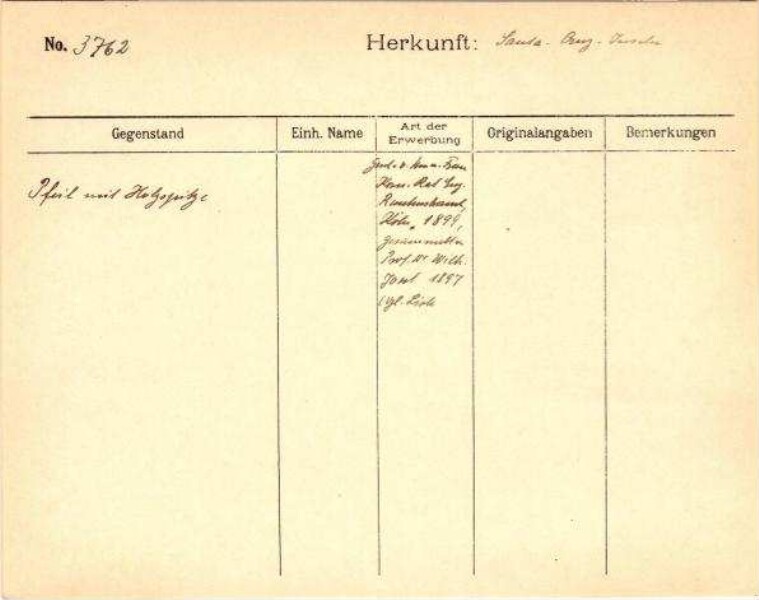 No. 3762
Herkunft: Santa-Cruz-Inseln
Gegenstand
Einh. Name
Art der Erwerbung
Originalangaben
Bemerkungen
Pfeil mit Holzspitze
Kom. Rat Eug.
Rautenstrauch,
Köln, 1899,
gesammelt v.
Prof. Dr Wilh.
Joest 1897